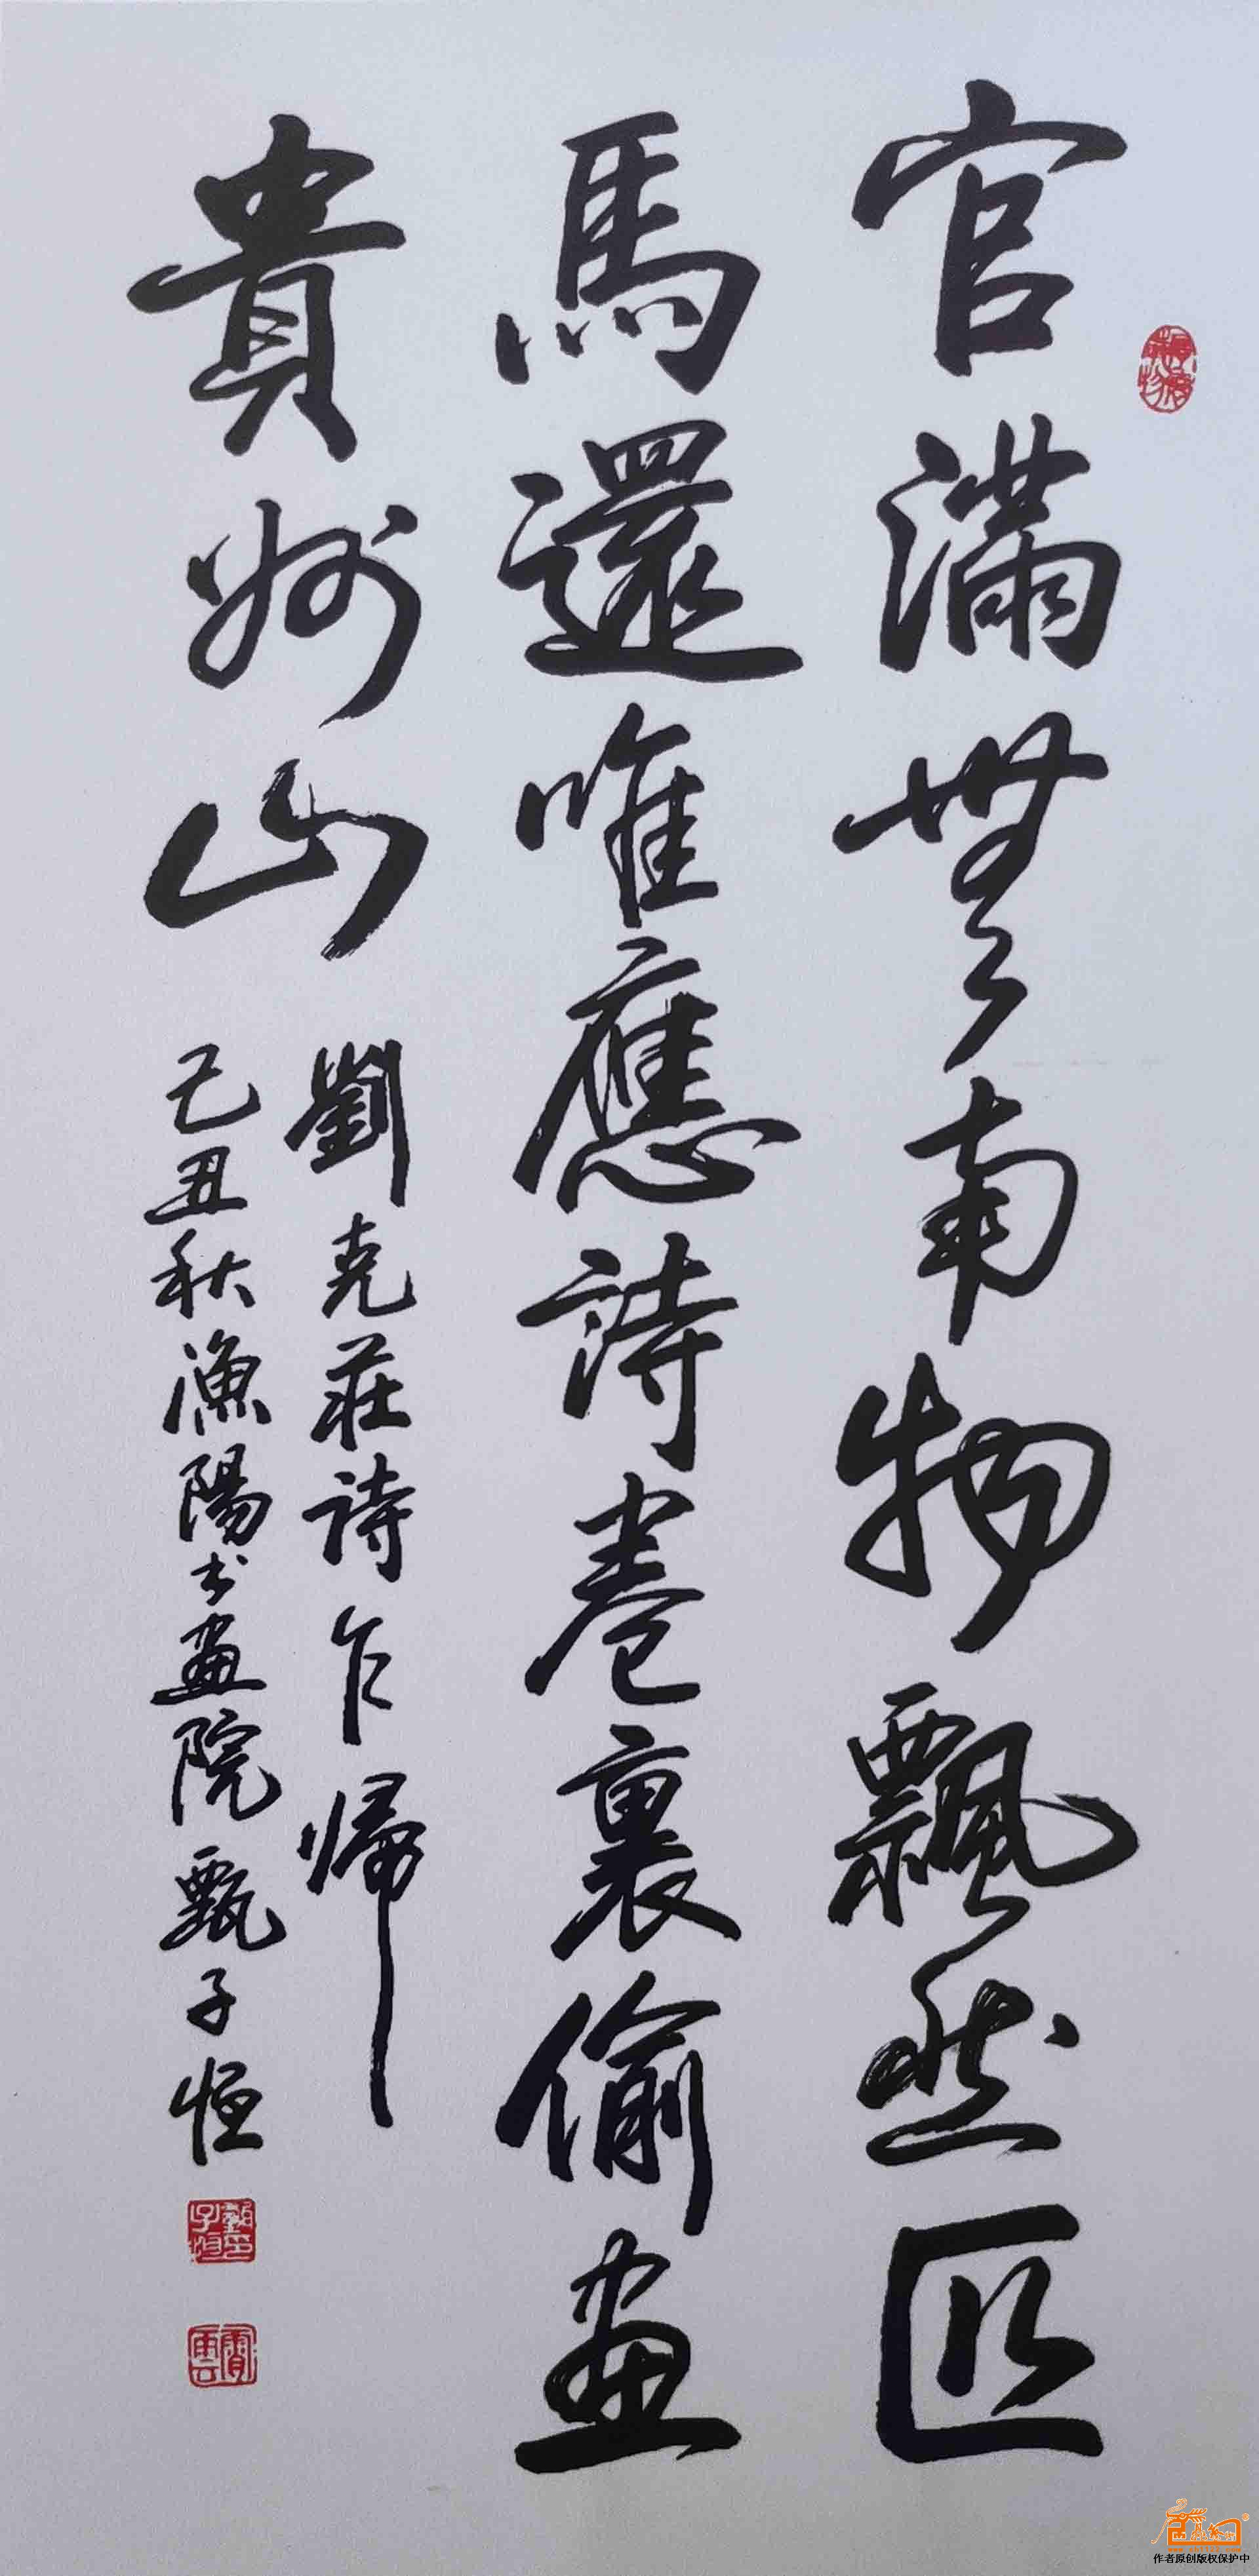 官滿無南物飄然匹
馬還唯應詩卷裏偷畫
貴州山
劉克莊詩乍歸
己丑秋漁陽书畫院甄子恒
作者原创版权保护中